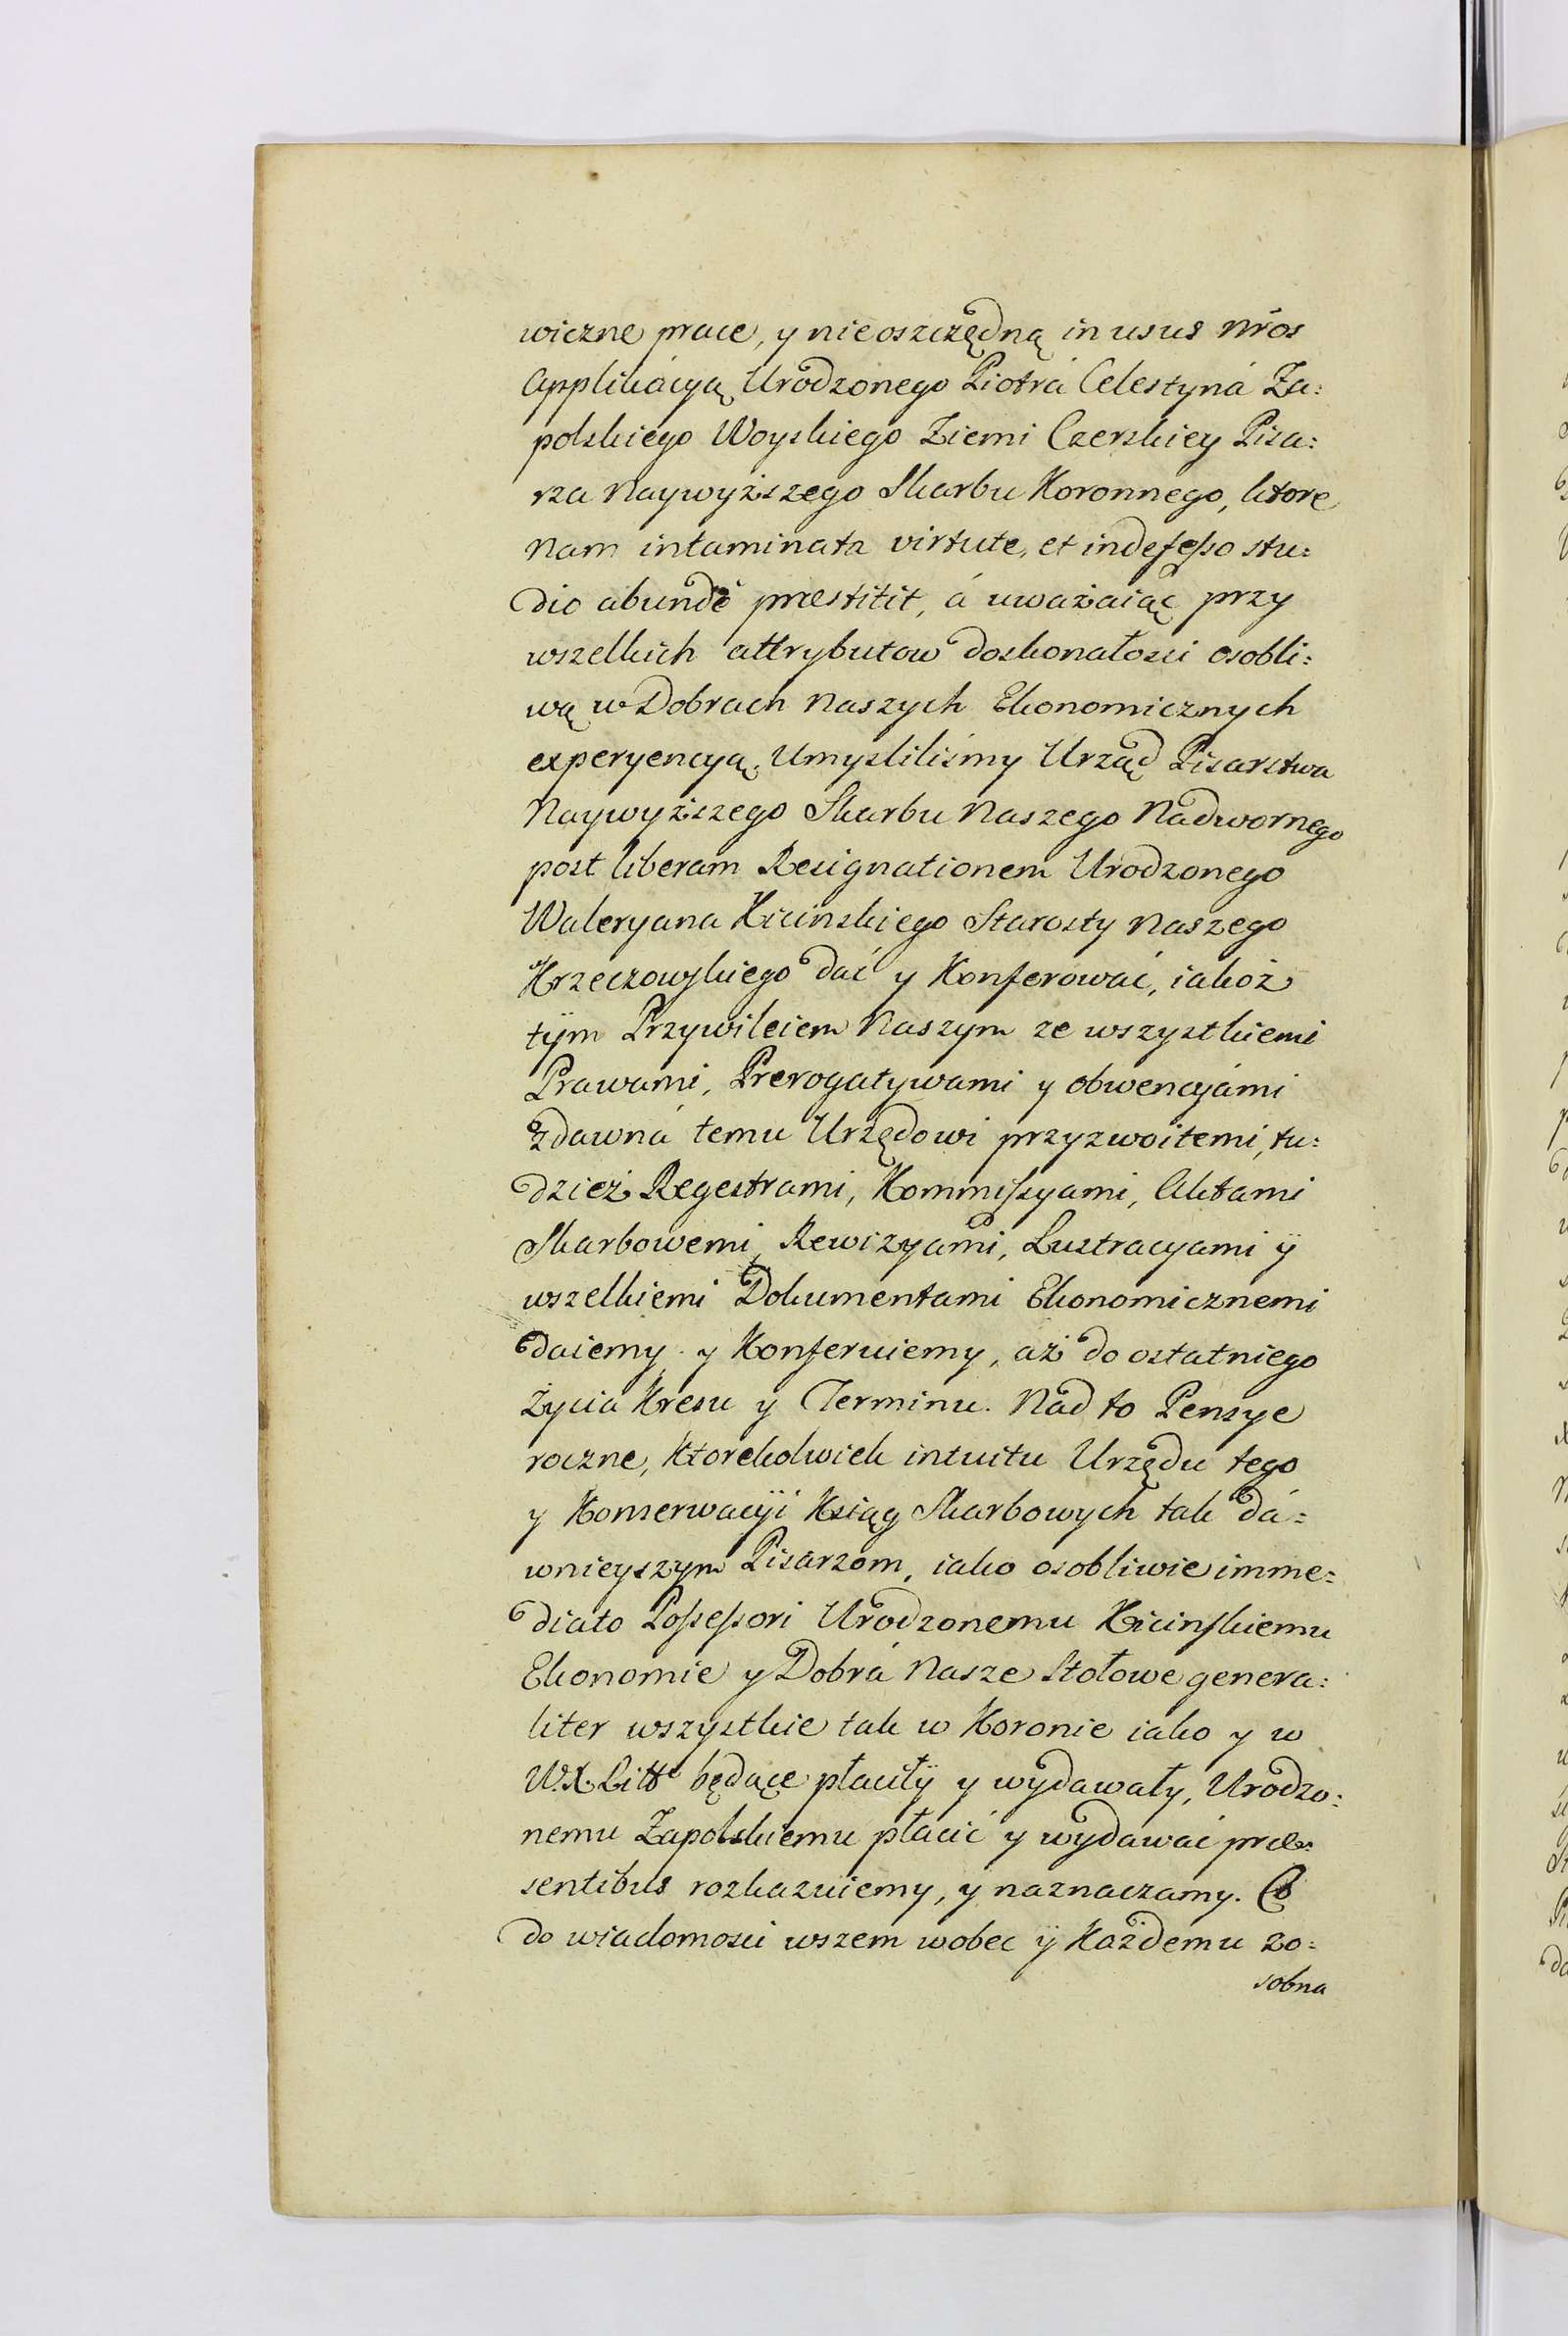 wiczne prace, y nieoszczędną in usus nr̃os
Applikácyą Urodzonego Piotrá Celestyná Za:
polskiego Woyskiego Ziemi Czerskiey Pisa:
rza Naywyższego Skarbu Koronnego, ktore
Nam intaminata virtute, et indefeſso stu:
dio abundè præstitit, á uważaiąc przy
wszelkich attrybutow doskonałosci osobli:
wą w Dobrach Naszych Ekonomicznych
experyencyą. Umyslilismy Urząd Pisarstwa
Naywyższego Skarbu Naszego Nadwornego
post liberam Resignationem Urodzonego
Waleryana Kicinskiego Starosty Naszego
Krzeczowſkiego dać y Konferować, iakoż
tÿm Przywileiem Naszym ze wszystkiemi
Prawami, Prerogatywami y obwencyámi
zdawná temu Urzędowi przyzwoitemi, tu:
dzież Regestrami, Kommiſsyami, Aktami
Skarbowemi, Rewizyami, Lustracyami ÿ
wszelkiemi Dokumentami Ekonomicznemi
daiemy y Konferuiemy, aż do ostatniego
Życia Kresu y Terminu. Nad to Pensye
roczne, Ktorekolwiek intuitu Urzędu tego
y Konserwacÿi Ksiąg Skarbowych tak dá:
wnieyszym Pisarzom, iako osobliwie imme:
diato Poſseſsori Urodzonemu Kicinſkiemu
Ekonomie y Dobrá Nasze Stołowe genera:
liter wszystkie tak w Koronie iako y w
W.X. Litt͠ będące płaciłÿ y wydawały, Urodzo:
nemu Zapolskiemu płacić y wydawać præ:
sentibus rozkazuiemy, y naznaczamy. Co
do wiadomosci wszem wobec ÿ Każdemu zo:
sobna